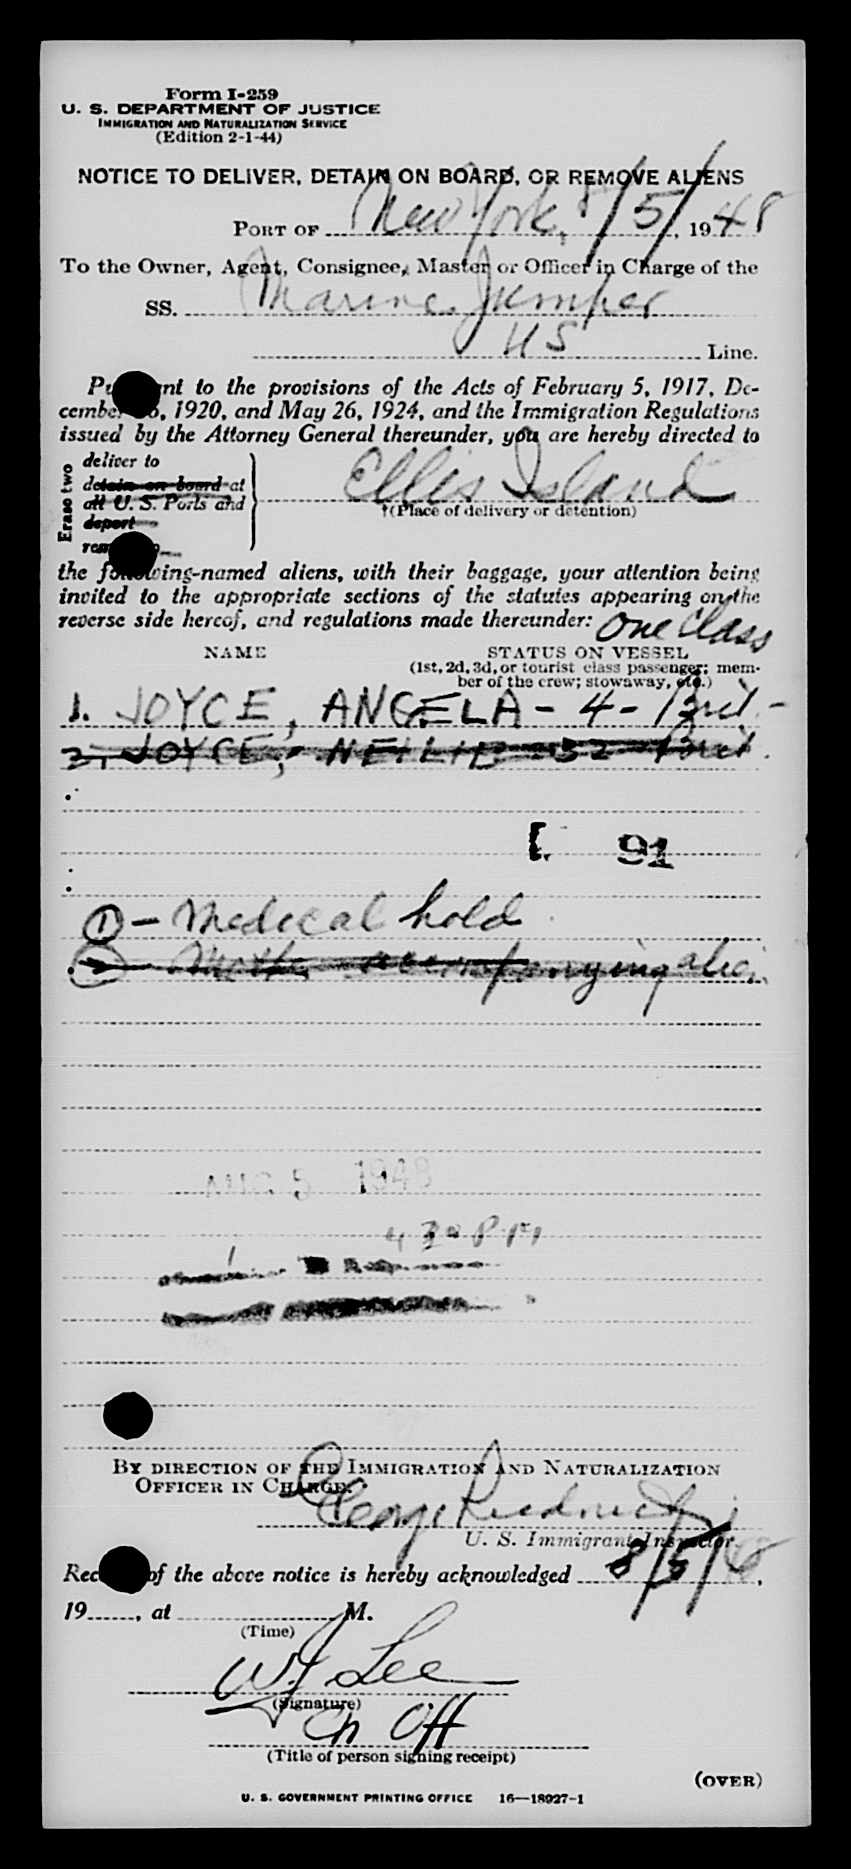 Form I-259
U. S. DEPARTMENT OF JUSTICE
IMMIGRATION AND NATURALIZATION SERVICE
(Edition 2-1-44)
NOTICE TO DELIVER, DETAIN ON BOARD, OR REMOVE ALIENS
PORT OF New York, 8/5/, 1948
To the Owner, Agent, Consignee, Master or Officer in Charge of the
SS. Marine Jumper
US Line.
Pu nt to the provisions of the Acts of February 5, 1917, De-
cember 6, 1920, and May 26, 1924, and the Immigration Regulations
issued by the Attorney General thereunder, you are hereby directed to
Erase two
deliver to
detain on board at
all U. S. Ports and
deport
rem
Ellis Island
†(Place of delivery or detention)
the following-named aliens, with their baggage, your attention being
invited to the appropriate sections of the statutes appearing on the
reverse side hereof, and regulations made thereunder:
One Class
NAME STATUS ON VESSEL
(1st, 2d, 3d, or tourist class passenger; mem-
ber of the crew; stowaway, etc.)
1. JOYCE, ANGELA - 4 - Brit. -
2. JOYCE, NELLIE - 32 Brit.
[. 91
① - Medical hold
② - Mother accompanying alien
AUG 5 1948
4 30 PM
BY DIRECTION OF THE IMMIGRATION AND NATURALIZATION
OFFICER IN CHARGE.
George
U. S. Immigrant Inspector.
Rec of the above notice is hereby acknowledged 8/5/48,
19, at M.
(Time)
W J Lee
(Signature)
Ch Off
(Title of person signing receipt)
(OVER)
U. S. GOVERNMENT PRINTING OFFICE 16—18927-1